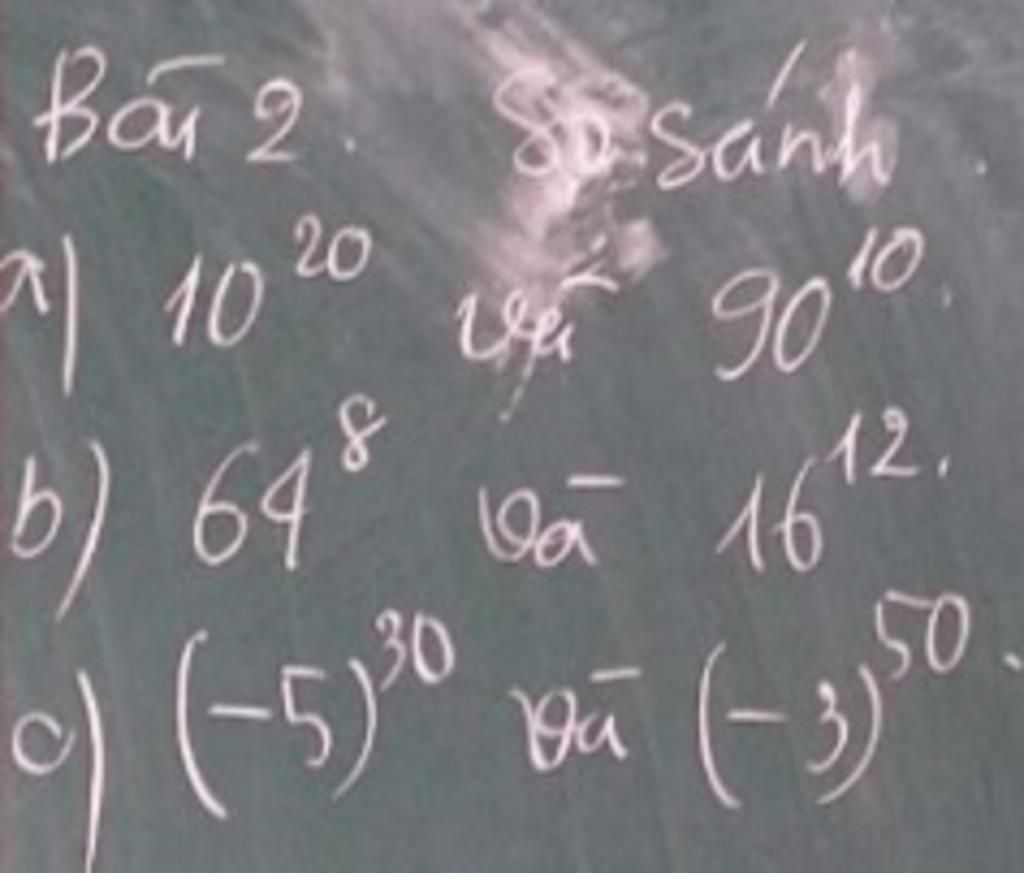 Bài 2. So sánh.
a) 10²⁰ và 90¹⁰.
b) 64⁸ và 16¹².
c) (-5)³⁰ và (-3)⁵⁰.